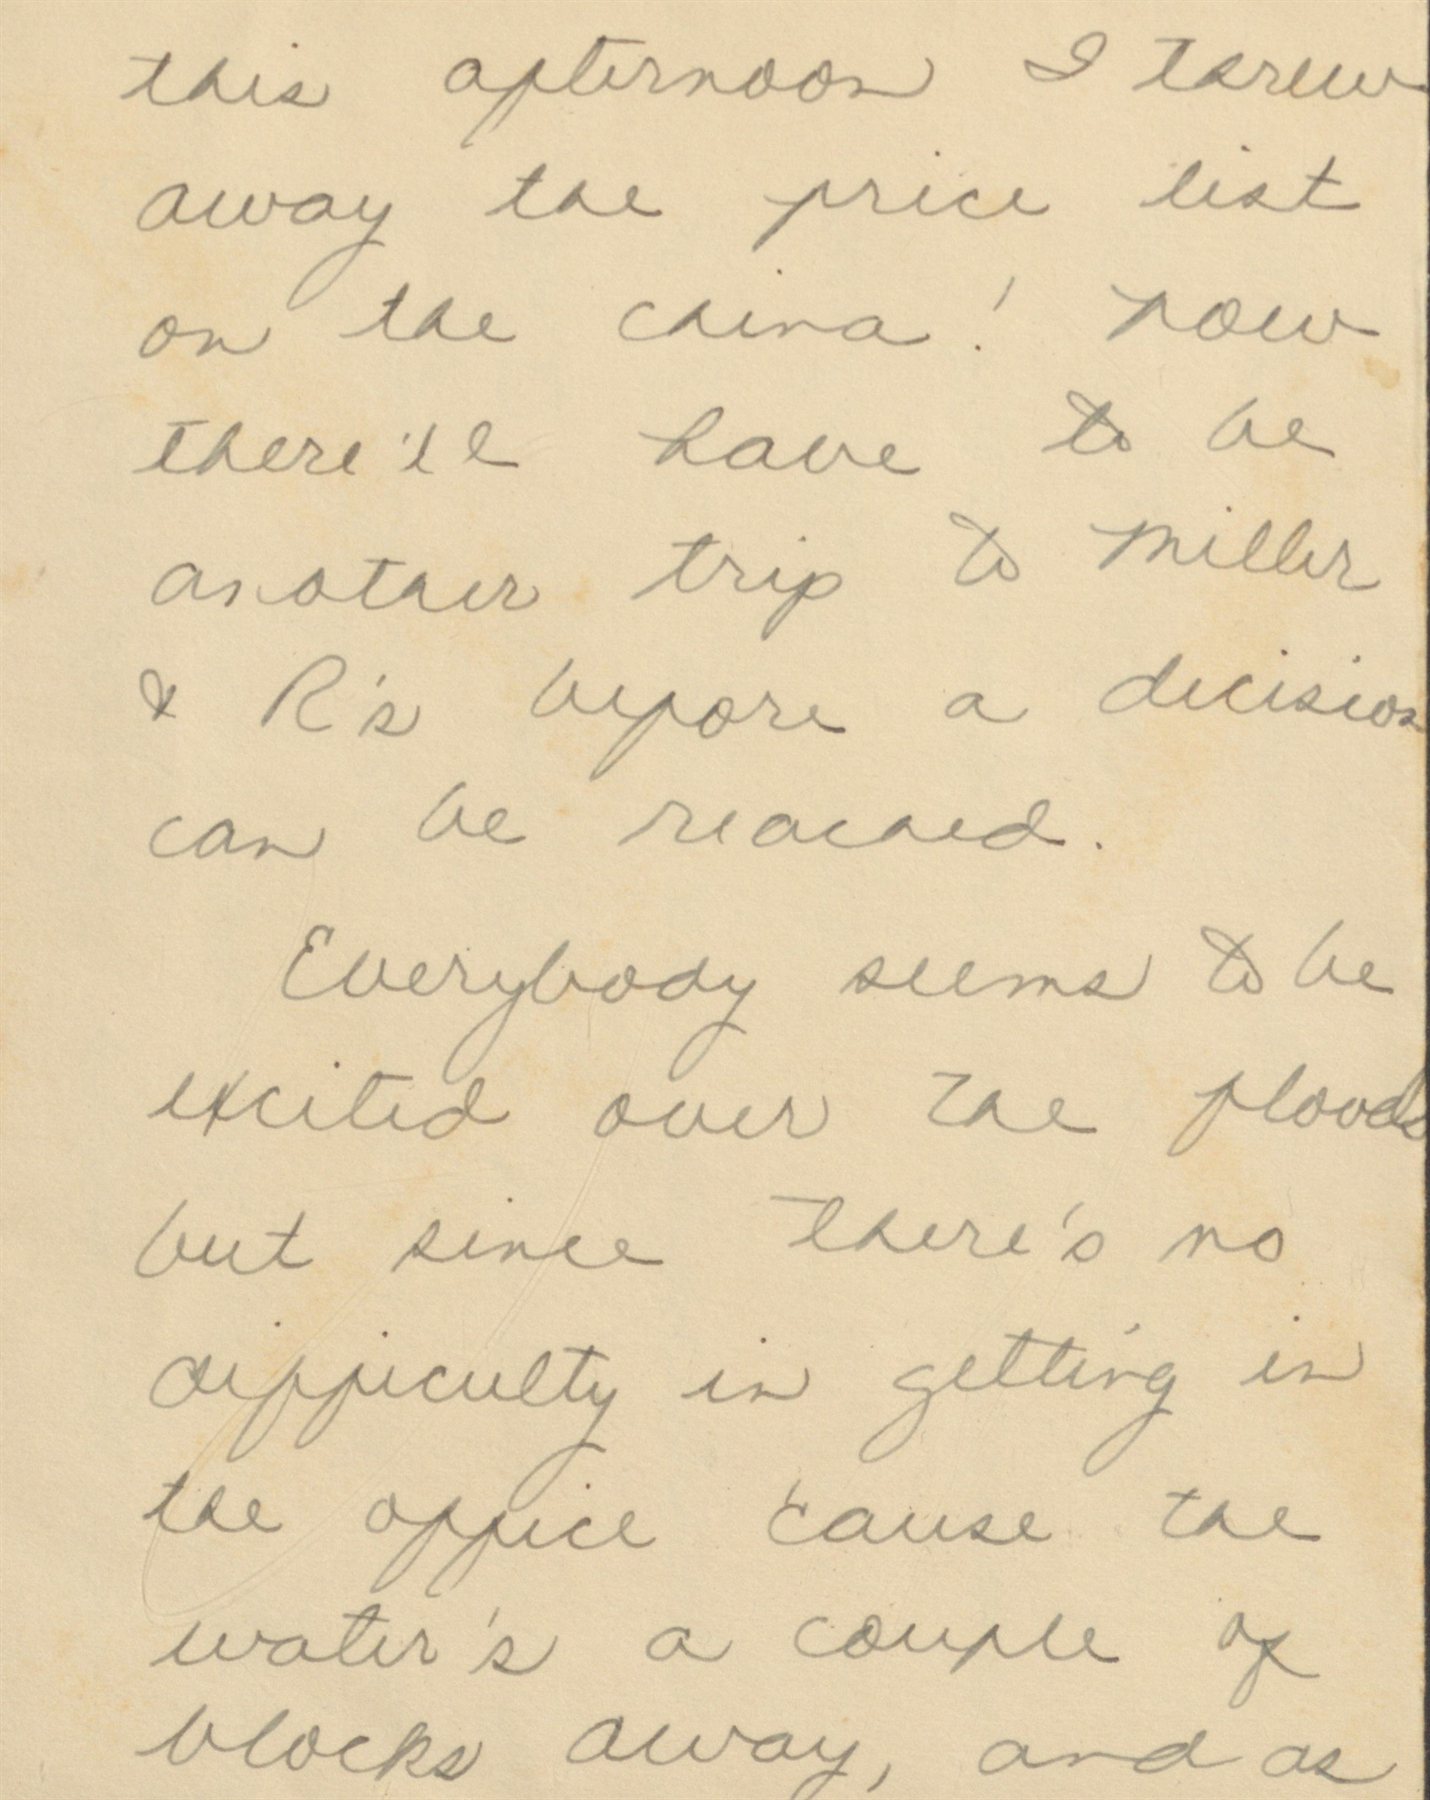 this afternoon I threw
away the price list
on the china! Now
there'll have to be
another trip to Miller
& R's before a decision
can be reached.
Everybody seems to be
excited over the floods
but since there's no
difficulty in getting in
the office 'cause the
water's a couple of
blocks away, and as